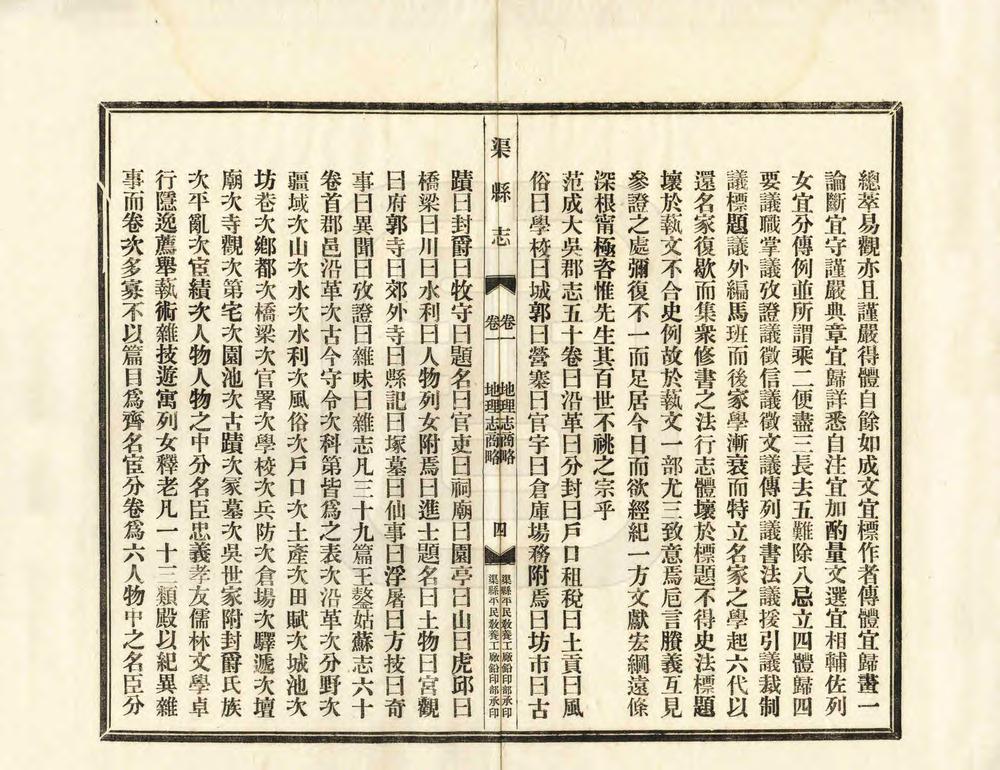 總萃易觀亦且謹嚴得體自餘如成文宜標作者傳體宜歸畫一
論斷宜守謹嚴典章宜歸詳悉自注宜加酌量文選宜相輔佐列
女宜分傳例並所謂乘二便盡三長去五難除八忌立四體歸四
要議職掌議攷證議徵信議徵文議傳列議書法議援引議裁制
議標題議外編馬班而後家學漸衰而特立名家之學起六代以
還名家復歇而集衆修書之法行志體壞於標題不得史法標題
壞於執文不合史例故於執文一部尤三致意焉卮言賸義互見
參證之處彌復不一而足居今日而欲經紀一方文獻宏綱遠條
深根甯極咨惟先生其百世不祧之宗乎
范成大吳郡志五十卷曰沿革曰分封曰戶口租稅曰土貢曰風
俗曰學校曰城郭曰營寨曰官宇曰倉庫場務附焉曰坊市曰古
渠縣志
卷一
卷一
地理志商略
地理志商略
四
渠縣平民敎養工廠鉛印部承印
渠縣平民敎養工廠鉛印部承印
蹟曰封爵曰牧守曰題名曰官吏曰祠廟曰園亭曰山曰虎邱曰
橋梁曰川曰水利曰人物列女附焉曰進士題名曰土物曰宮觀
曰府郭寺曰郊外寺曰縣記曰塚墓曰仙事曰浮屠曰方技曰奇
事曰異聞曰攷證曰雜咏曰雜志凡三十九篇王鏊姑蘇志六十
卷首郡邑沿革次古今守令次科第皆爲之表次沿革次分野次
疆域次山次水次水利次風俗次戶口次土產次田賦次城池次
坊巷次鄉都次橋梁次官署次學校次兵防次倉場次驛遞次壇
廟次寺觀次第宅次園池次古蹟次冢墓次吳世家附封爵氏族
次平亂次宦績次人物人物之中分名臣忠義孝友儒林文學卓
行隱逸薦舉執術雜技遊寓列女釋老凡一十三類殿以紀異雜
事而卷次多寡不以篇目爲齊名宦分卷爲六人物中之名臣分